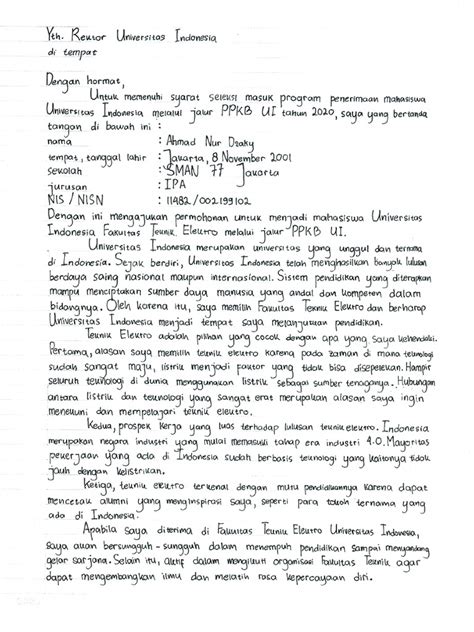 Yth. Rektor Universitas Indonesia
di tempat
Dengan hormat,
Untuk memenuhi syarat seleksi masuk program penerimaan mahasiswa
Universitas Indonesia melalui jalur PPKB UI tahun 2020, saya yang bertanda
tangan di bawah ini :
nama : Ahmad Nur Dzaky
tempat, tanggal lahir : Jakarta, 8 November 2001
sekolah : SMAN 77 Jakarta
jurusan : IPA
NIS / NISN : 11482/002199102
Dengan ini mengajukan permohonan untuk menjadi mahasiswa Universitas
Indonesia Fakultas Teknik Elektro melalui jalur PPKB UI.
Universitas Indonesia merupakan universitas yang unggul dan ternama
di Indonesia. Sejak berdiri, Universitas Indonesia telah menghasilkan banyak lulusan
berdaya saing nasional maupun internasional. Sistem pendidikan yang diterapkan
mampu menciptakan sumber daya manusia yang andal dan kompeten dalam
bidangnya. Oleh karena itu, saya memilih Fakultas Teknik Elektro dan berharap
Universitas Indonesia menjadi tempat saya melanjutkan pendidikan.
Teknik Elektro adalah pilihan yang cocok dengan apa yang saya kehendaki.
Pertama, alasan saya memilih teknik elektro karena pada zaman di mana teknologi
sudah sangat maju, listrik menjadi faktor yang tidak bisa disepelekan. Hampir
seluruh teknologi di dunia menggunakan listrik sebagai sumber tenaganya. Hubungan
antara listrik dan teknologi yang sangat erat merupakan alasan saya ingin
menekuni dan mempelajari teknik elektro.
Kedua, prospek kerja yang luas terhadap lulusan teknik elektro. Indonesia
merupakan negara industri yang mulai memasuki tahap era industri 4.0. Mayoritas
pekerjaan yang ada di Indonesia sudah berbasis teknologi yang kaitannya tidak
jauh dengan kelistrikan.
Ketiga, teknik elektro terkenal dengan mutu pendidikannya karena dapat
mencetak alumni yang menginspirasi saya, seperti para tokoh ternama yang
ada di Indonesia.
Apabila saya diterima di Fakultas Teknik Elektro Universitas Indonesia,
saya akan bersungguh-sungguh dalam menempuh pendidikan sampai menyandang
gelar sarjana. Selain itu, aktif dalam mengikuti organisasi Fakultas Teknik agar
dapat mengembangkan ilmu dan melatih rasa kepercayaan diri.